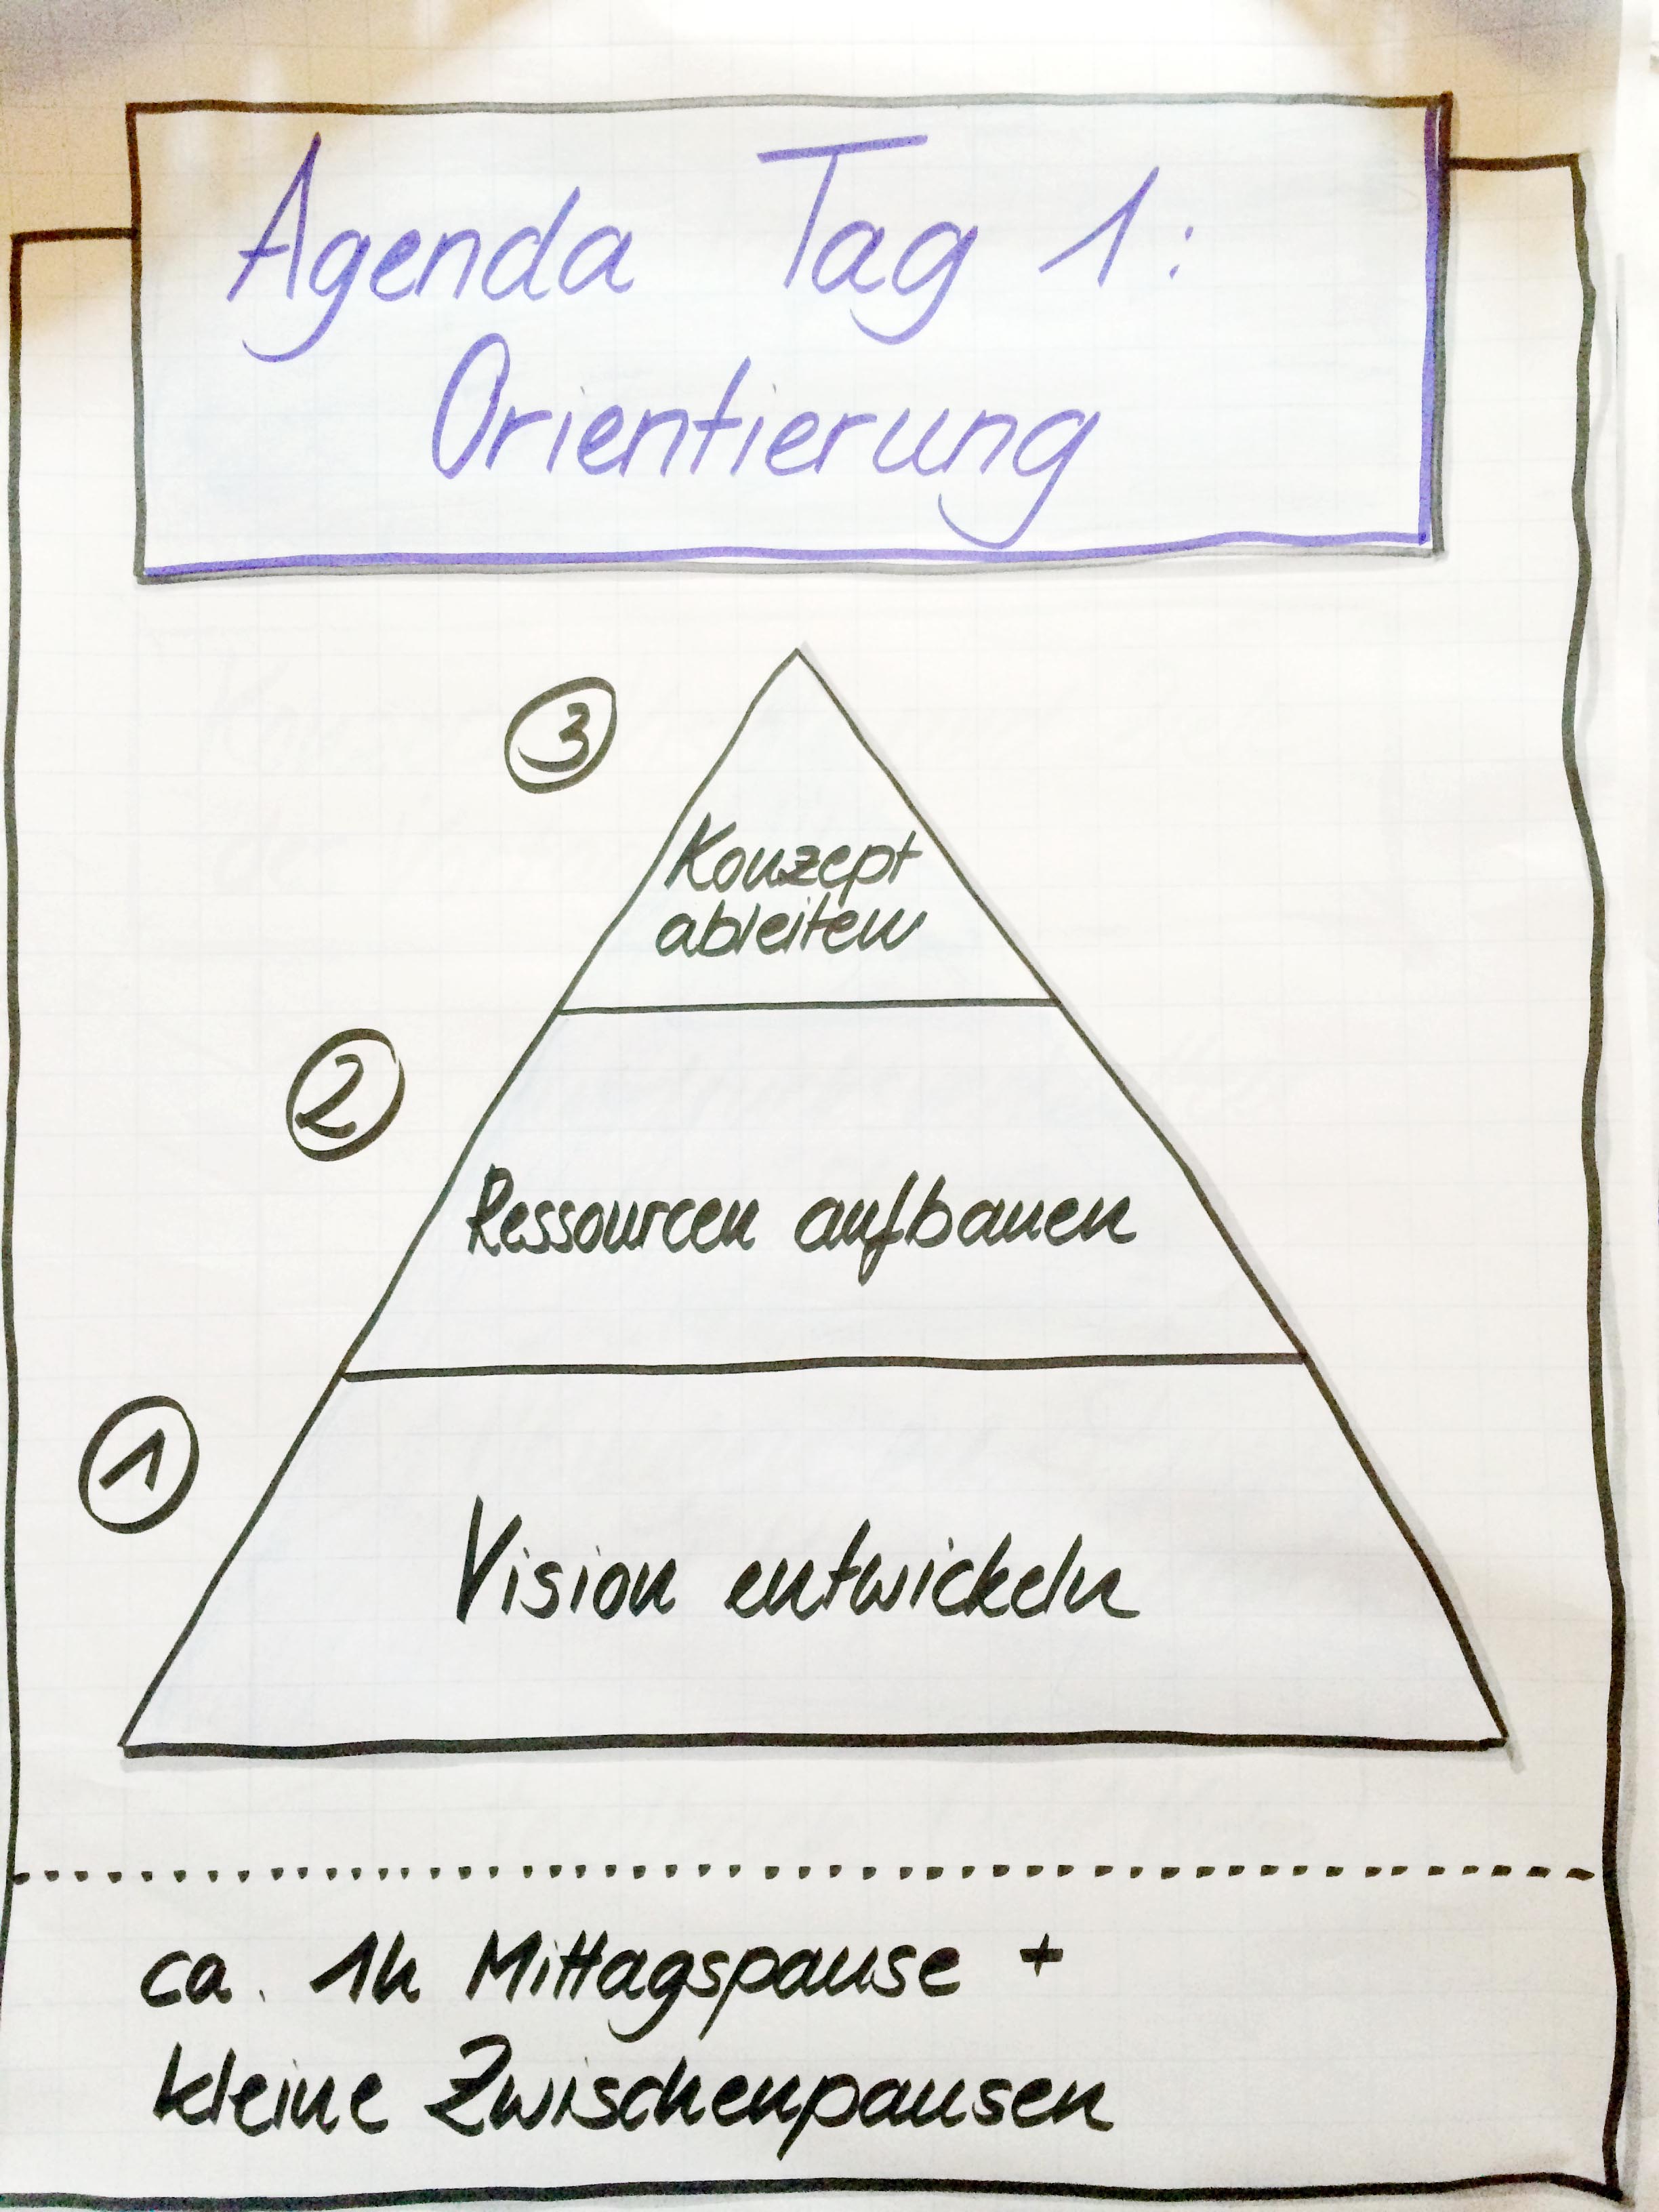 Agenda Tag 1:
Orientierung
3
Konzept
ableiten
2
Ressourcen aufbauen
1
Vision entwickeln
ca. 1h Mittagspause +
kleine Zwischenpausen